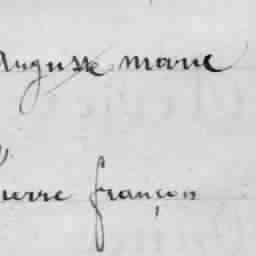 Auguste marie
Pierre françois